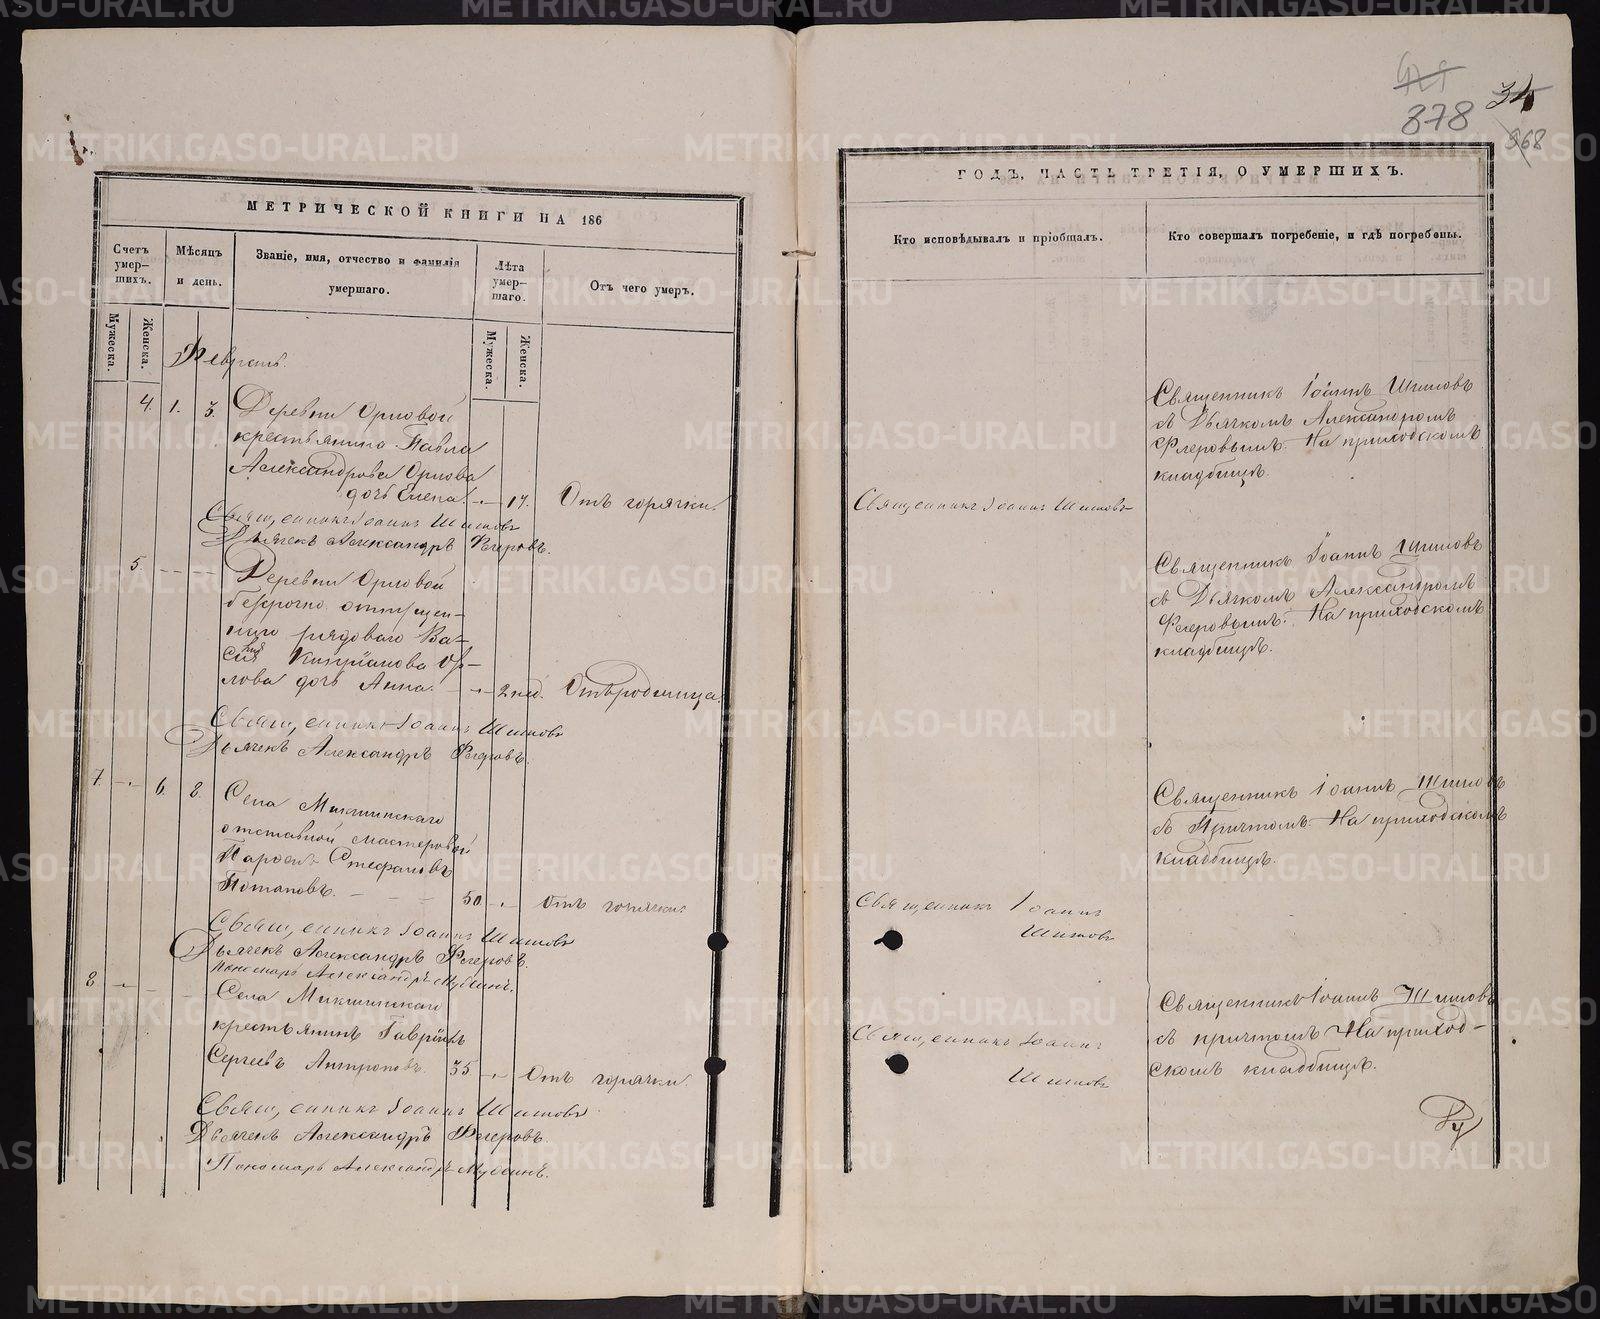 878
968
МЕТРИЧЕСКОЙ КНИГИ НА 186
Счетъ умер–шихъ.
Мѣсяцъ и день.
Званіе, имя, отчество и фамилія умершаго.
Лѣта умер–шаго.
Отъ чего умеръ.
Мужеска.
Женска.
Мужеска.
Женска.
Февраль.
4. 1. 3. Деревни Орловой
крестьянина Павла
Александрова Орлова
дочь Елена. 17. Отъ горячки.
Священникъ Іоаннъ Шишовъ
Дьячекъ Александръ Флеровъ.
5. Деревни Орловой
безсрочно отпущен–
наго рядоваго Ва–
силія Кипріанова Ор–
лова дочь Анна. 2 нед. Отъ родимца.
Священникъ Іоаннъ Шишовъ
Дьячекъ Александръ Флеровъ.
7. 6. 8. Села Микшинскаго
отставной мастеровой
Стефановъ
Потаповъ. 50 Отъ горячки.
Священникъ Іоаннъ Шишовъ
Дьячекъ Александръ Флеровъ.
Пономарь Александръ
8 Села Микшинскаго
крестьянинъ Гавріилъ
Сергеевъ Антроповъ. 35 Отъ горячки.
Священникъ Іоаннъ Шишовъ
Дьячекъ Александръ Флеровъ.
Пономарь Александръ
ГОДЪ, ЧАСТЬ ТРЕТІЯ, О УМЕРШИХЪ.
Кто исповѣдывалъ и пріобщалъ.
Кто совершалъ погребеніе, и гдѣ погребены.
Священникъ Іоаннъ Шишовъ
съ Дьячкомъ Александромъ
Флеровымъ. На приходскомъ
кладбищѣ.
Священникъ Іоаннъ Шишовъ
Священникъ Іоаннъ Шишовъ
съ Дьячкомъ Александромъ
Флеровымъ. На приходскомъ
кладбищѣ.
Священникъ Іоаннъ Шишовъ
съ Причтомъ. На приходскомъ
кладбищѣ.
Священникъ Іоаннъ
Шишовъ
Священникъ Іоаннъ Шишовъ
съ причтомъ На приход–
скомъ кладбищѣ.
Священникъ Іоаннъ
Шишовъ
METRIKI.GASO-URAL.RU